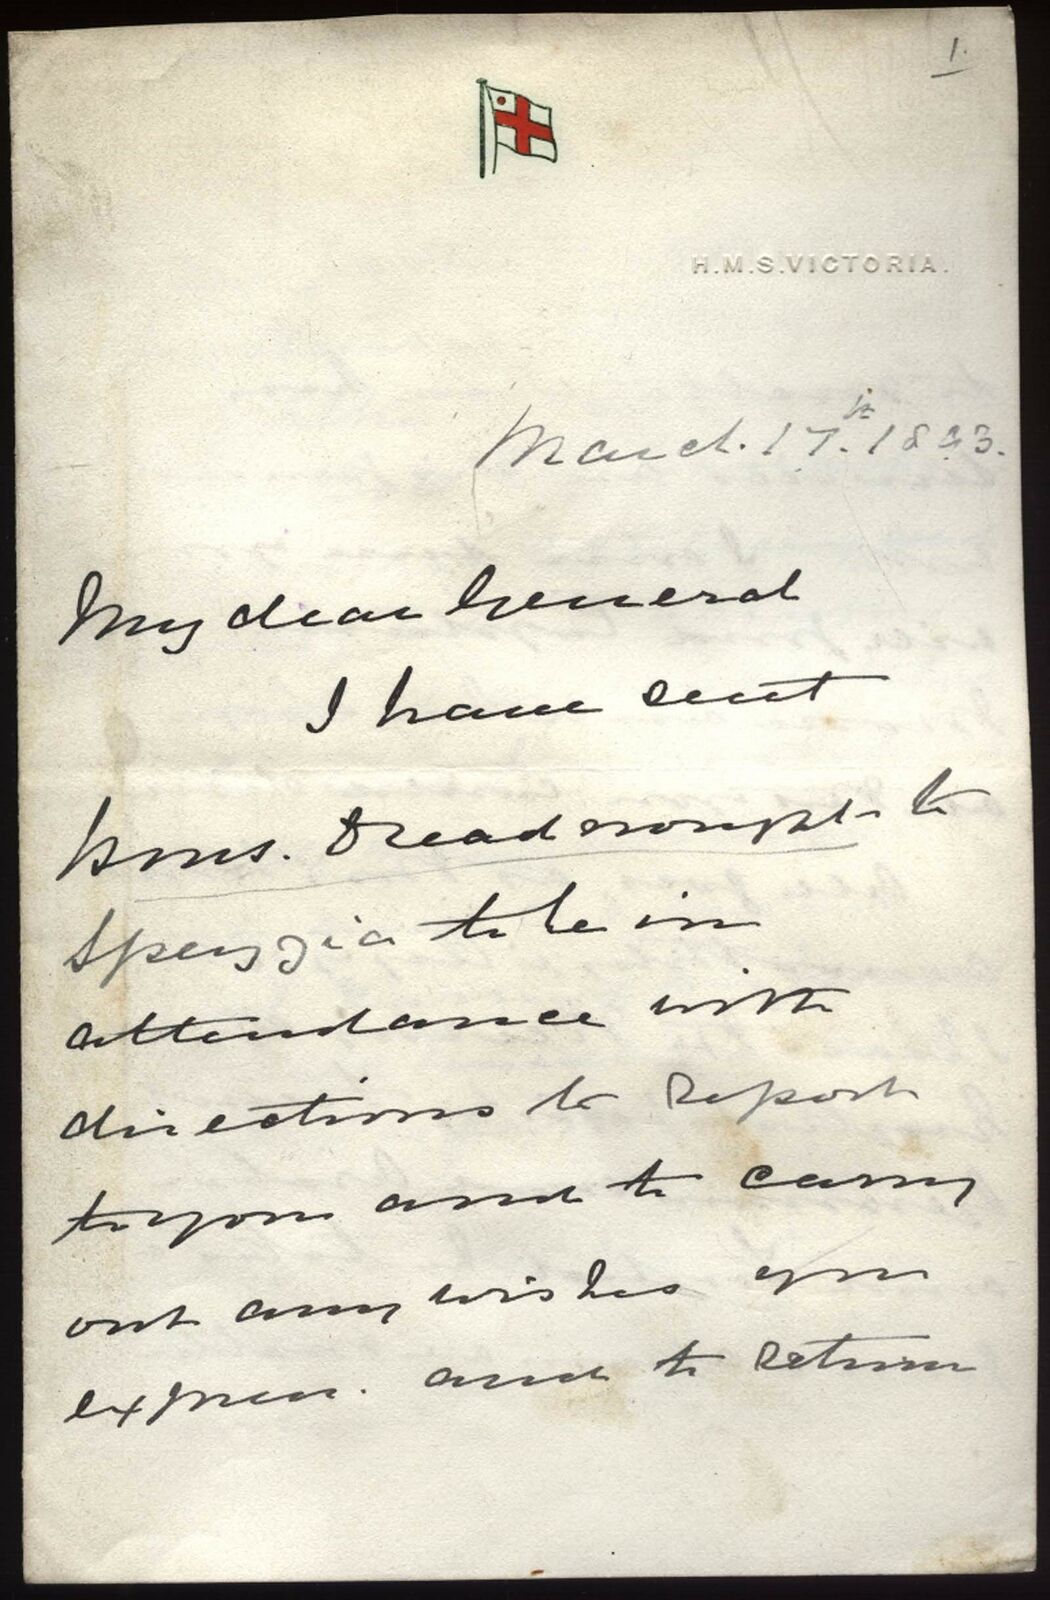 1.
H.M.S. VICTORIA.
March. 17th. 1893.
My dear General
I have sent
H.M.S. Dreadnought to
Spezzia to be in
attendance with
directions to report
to you and to carry
out any wishes you
express. and to return